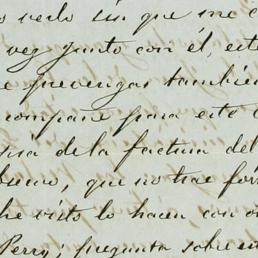 verlo sin que me c
vez junto con él, est
prevengas tambié
compañe para este
sa de la factura del
bueno, que no trae
he visto lo hacen con o
Perry; pregunta sobre e